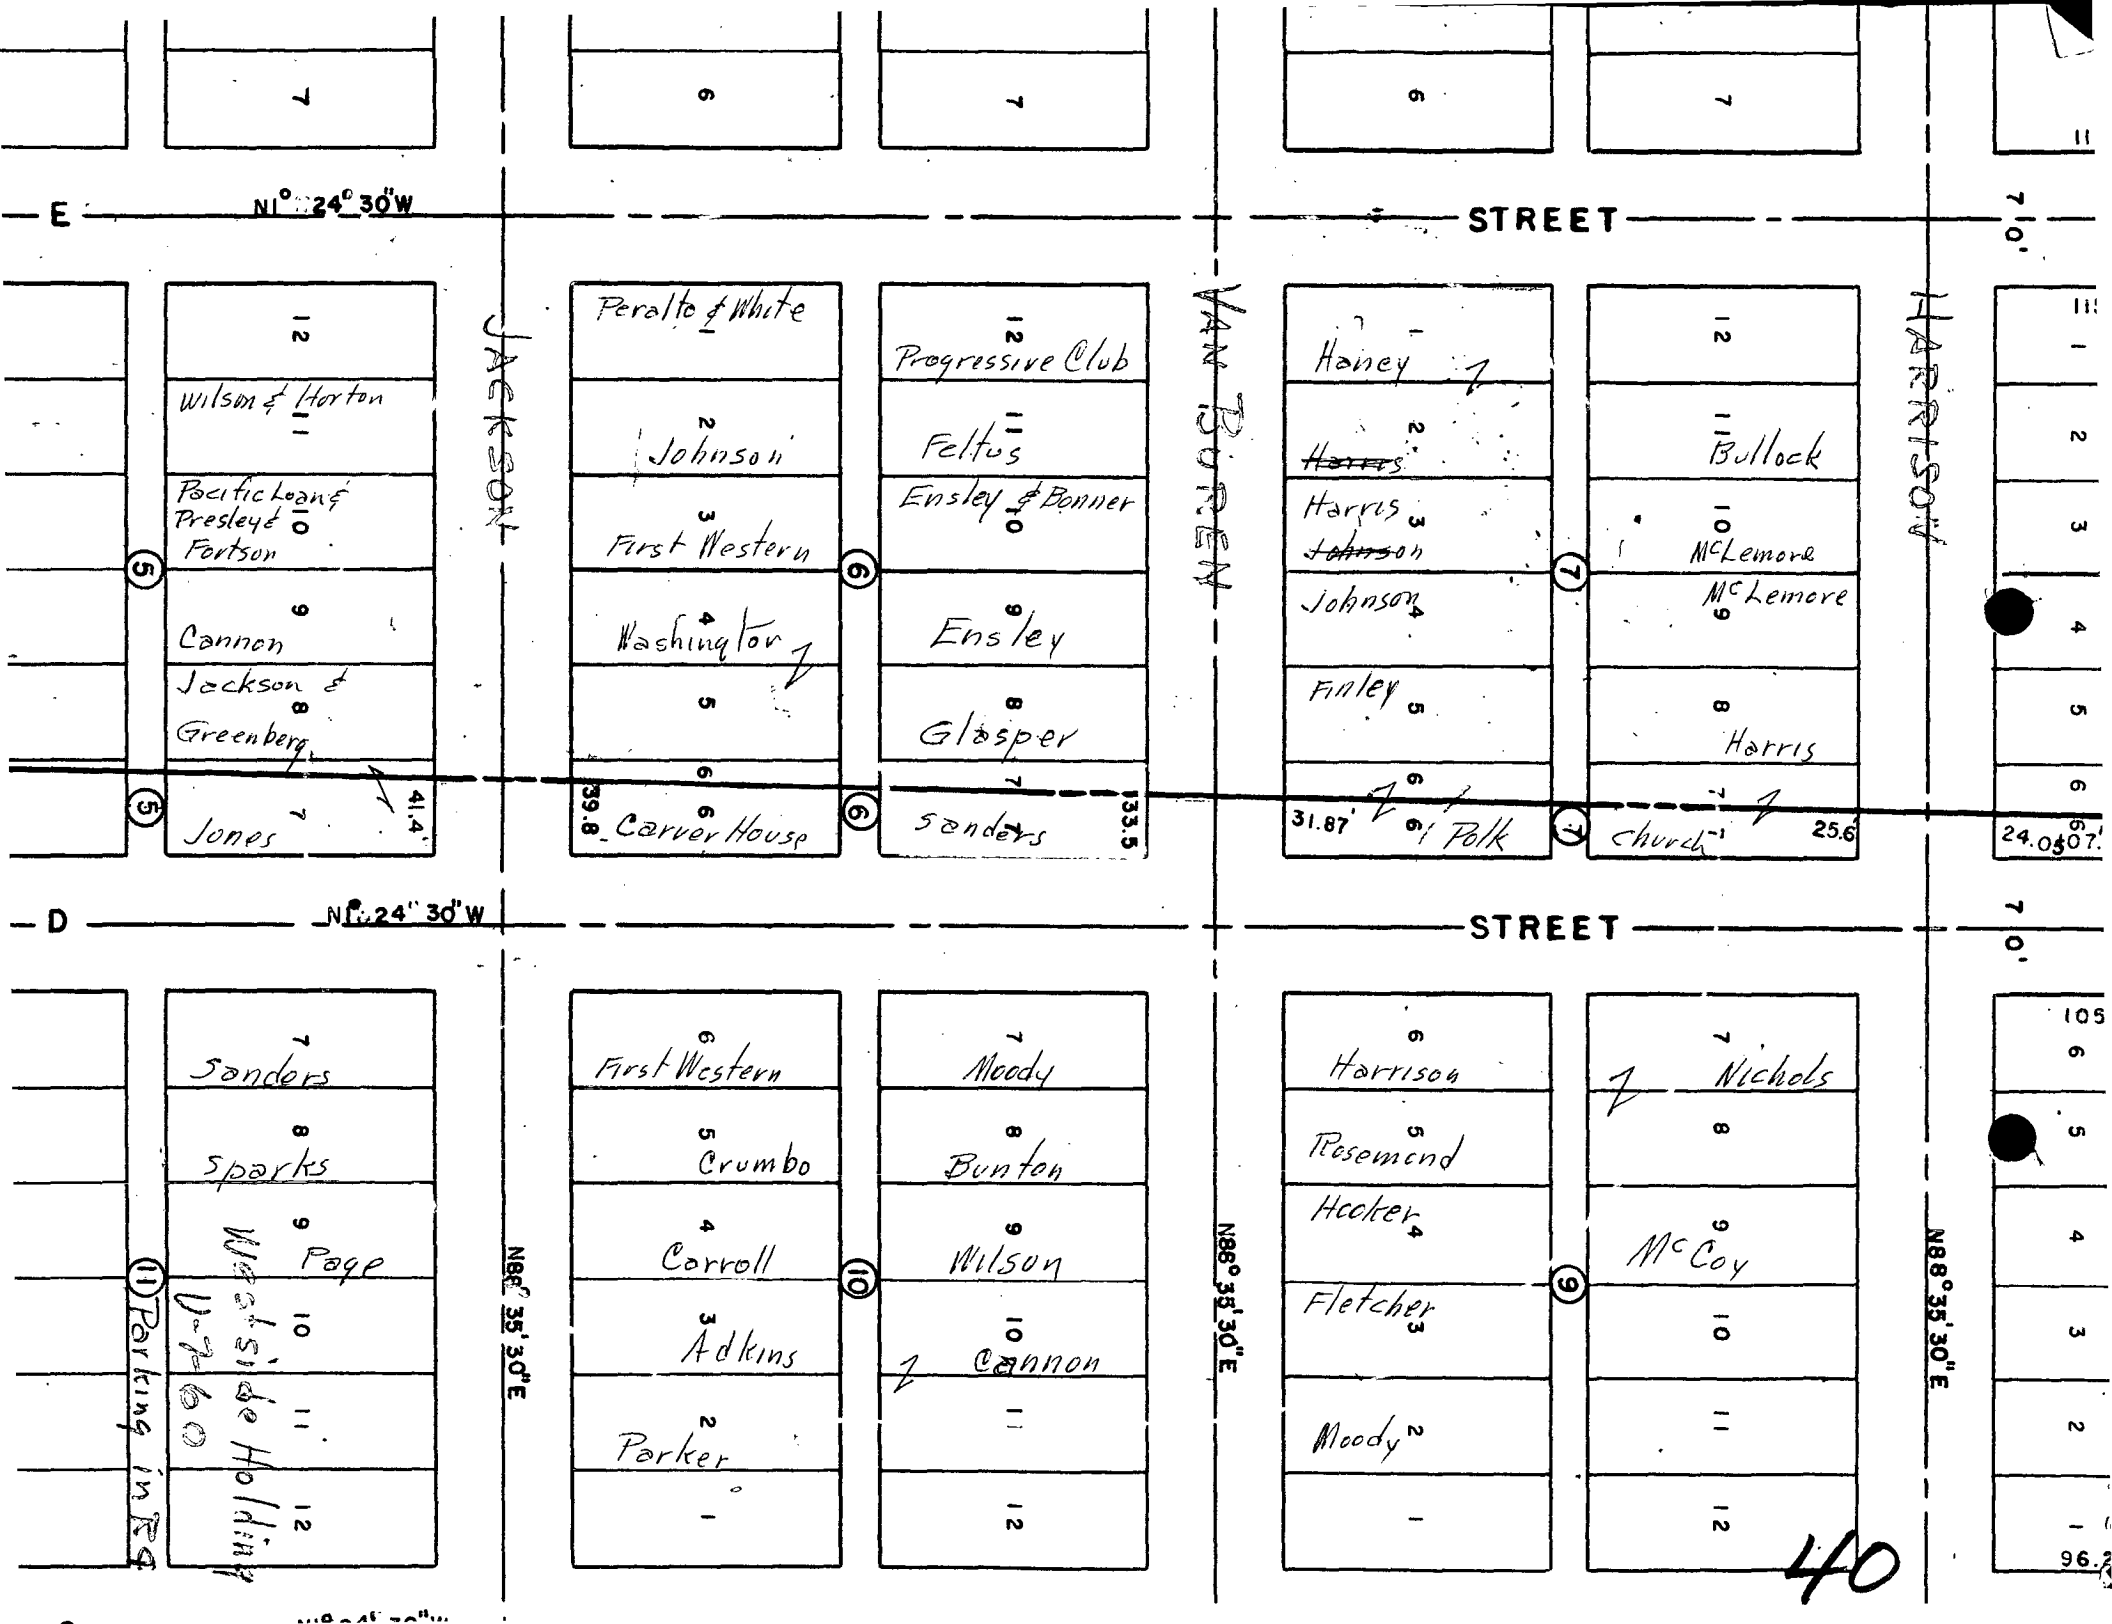 7
6
7
6
7
11
E
N1° 24' 30"W
STREET
70'
JACKSON
VAN BUREN
HARRISON
12
Wilson & Horton
11
Pacific Loan &
Presley &
10
Fortson
5
9
Cannon
Jackson &
8
Greenberg
5
7
Jones
41.4'
Peralto & White
1
2
Johnson
3
First Western
4
Washington
5
6
39.8'
6
Carver House
6
6
12
Progressive Club
11
Feltus
Ensley & Bonner
10
9
Ensley
8
Glasper
7
7
Sanders
33.5
1
Haney
2
Harris
Harris
3
Johnson
Johnson
4
Finley
5
6
31.87'
6
Polk
7
7
12
11
Bullock
10
McLemore
McLemore
9
8
Harris
7
Church
25.6'
1
2
3
4
5
6
6
24.05
07.
D
N1° 24' 30"W
STREET
70'
7
Sanders
8
Sparks
9
Page
10
11
12
11
Parking in Rq
V-7-60
Westside Holding
N88° 35' 30"E
6
First Western
5
Crumbo
4
Carroll
3
Adkins
2
Parker
1
10
7
Moody
8
Bunton
9
Wilson
10
Cannon
11
12
N88° 35' 30"E
6
Harrison
5
Rosemond
Hooker
4
Fletcher
3
Moody
2
1
9
7
Nichols
8
9
McCoy
10
11
12
N88° 35' 30"E
105
6
5
4
3
2
1
96.2
40